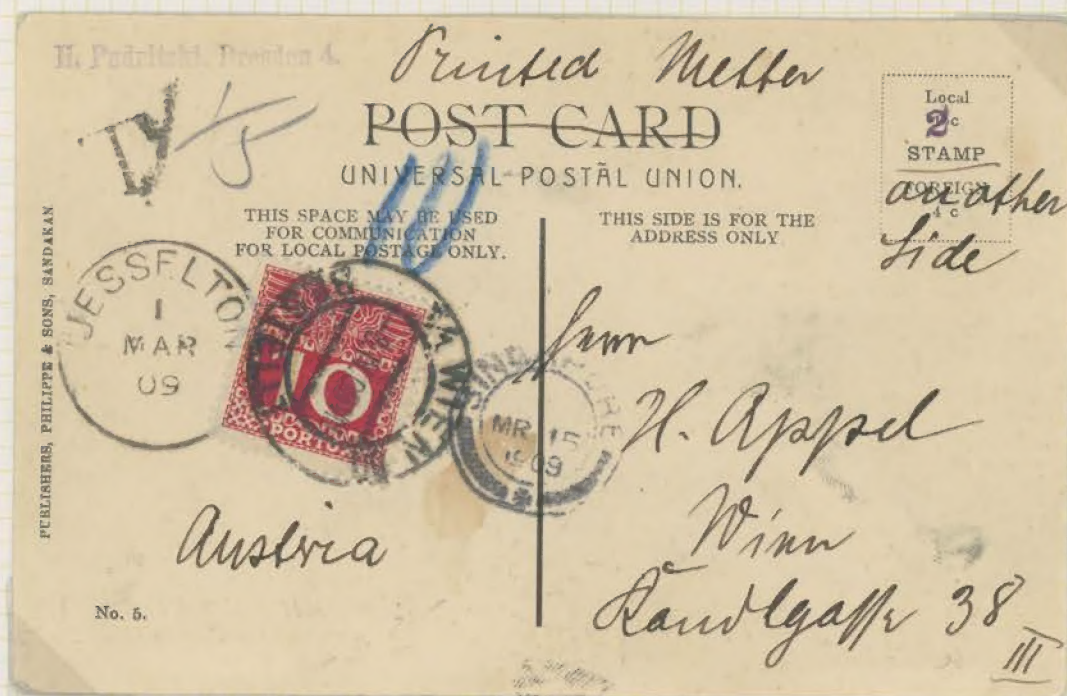 H. Padritzki, Dresden 4.
Printed Matter
T
5
POST CARD
UNIVERSAL POSTAL UNION.
Local
2c
STAMP
FOREIGN
4 c
on other
Side
THIS SPACE MAY BE USED
FOR COMMUNICATION
FOR LOCAL POSTAGE ONLY.
THIS SIDE IS FOR THE
ADDRESS ONLY
PUBLISHERS, PHILIPPE & SONS, SANDAKAN
JESSELTON
1
MAR
09
10
PORTO
WIEN
SINGAPORE
MR 15
1909
Herrn
H. Appel
Wien
Kandlgasse 38
III
Austria
No. 5.